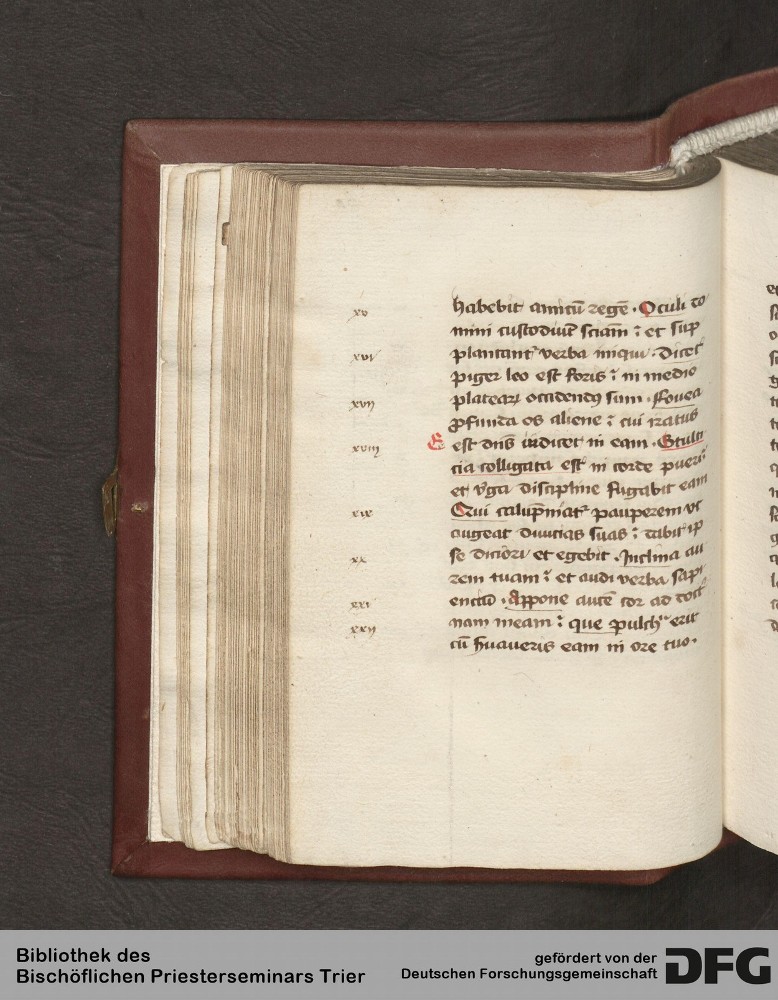 xv
xvi
xvii
xviii
xix
xx
xxi
xxii
habebit amicū regē . Oculi do
mini custodiūt sciam̄ : et sup
plantant² verba iniqui . Dicet
piger leo est foris : in medio
platearꝝ occidendꝰ sum . Fouea
ꝓfunda os aliene : cui iratus
E est dn̄s incidet in eam . Stulti
cia colligata est in corde pueri :
et v̓ga discipline fugabit eam
Qui calūpniat² pauperem vt
augeat diuicias suas : dabit ip
se diciori et egebit . Inclina au
rem tuam : et audi verba sapi
entiū . Appone autē cor ad doct
nam meam : que pulch² erit
cū s̄uaueris eam in ore tuo .
Bibliothek des
Bischöflichen Priesterseminars Trier
gefördert von der
Deutschen Forschungsgemeinschaft
DFG